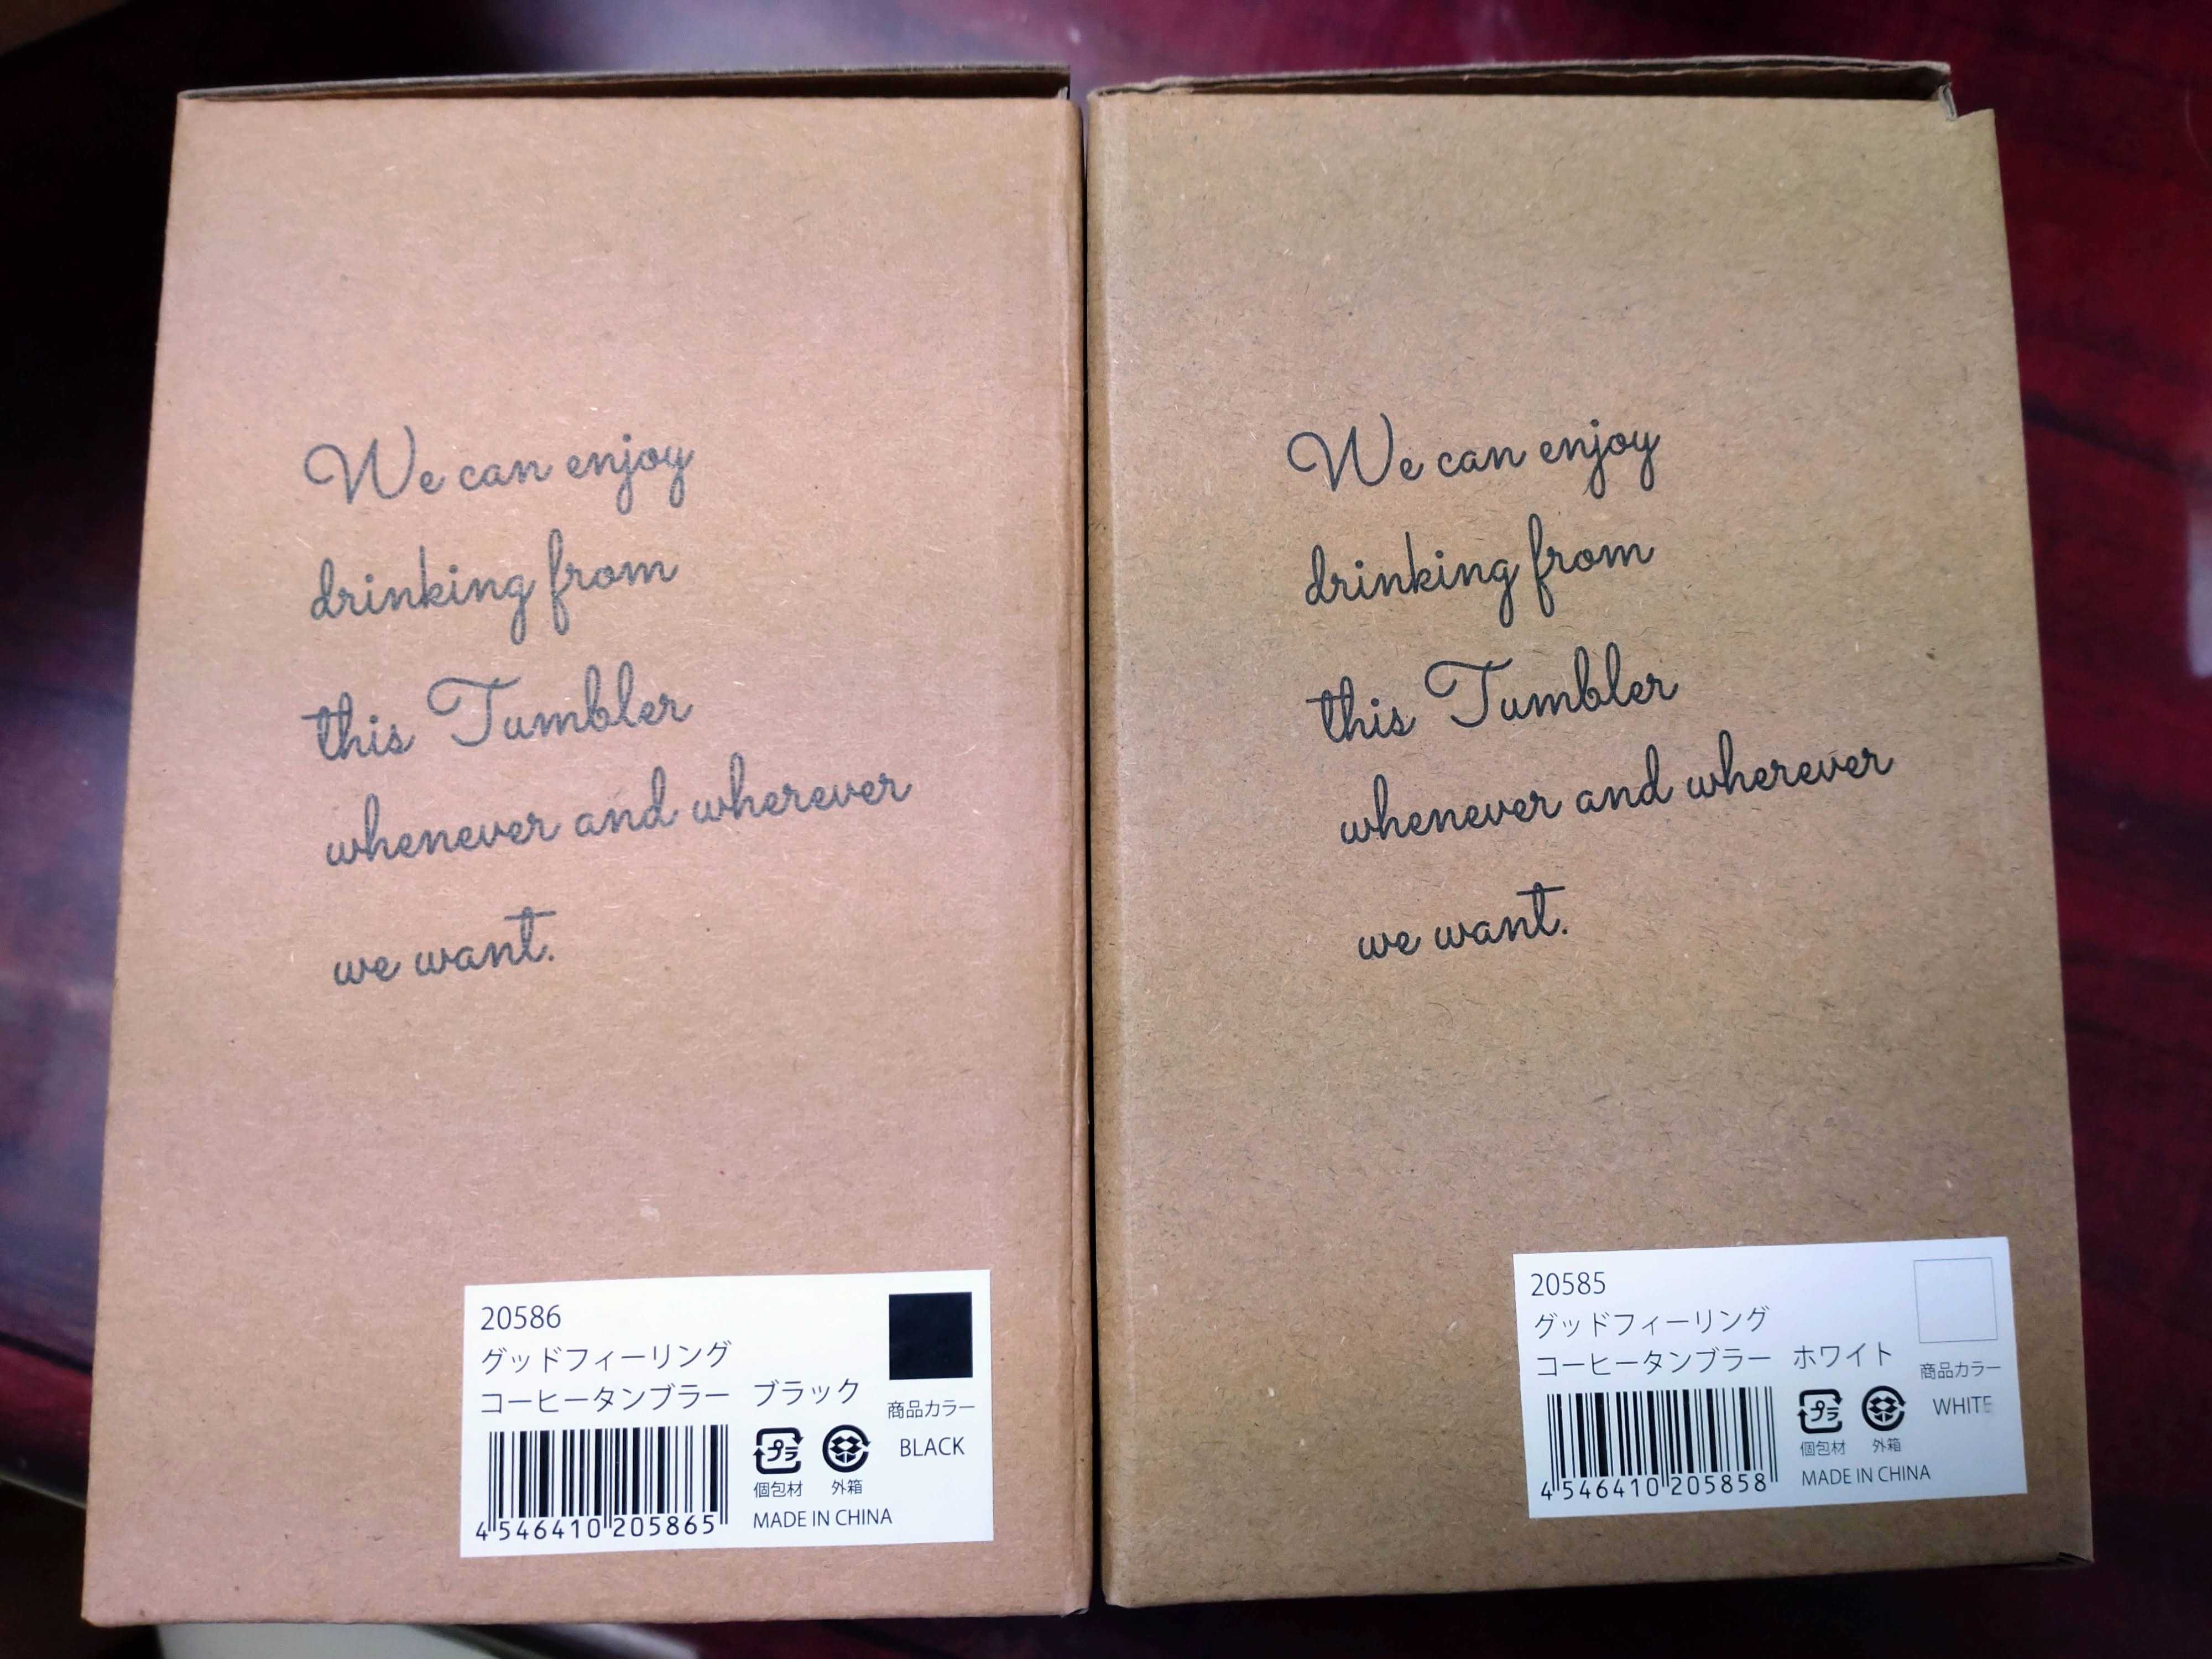 We can enjoy
drinking from
this Tumbler
whenever and wherever
we want.
20586
グッドフィーリング
コーヒータンブラー ブラック
商品カラー
BLACK
プラ
個包材 外箱
MADE IN CHINA
4 546410 205865
We can enjoy
drinking from
this Tumbler
whenever and wherever
we want.
20585
グッドフィーリング
コーヒータンブラー ホワイト
商品カラー
WHITE
プラ
個包材 外箱
MADE IN CHINA
4 546410 205858